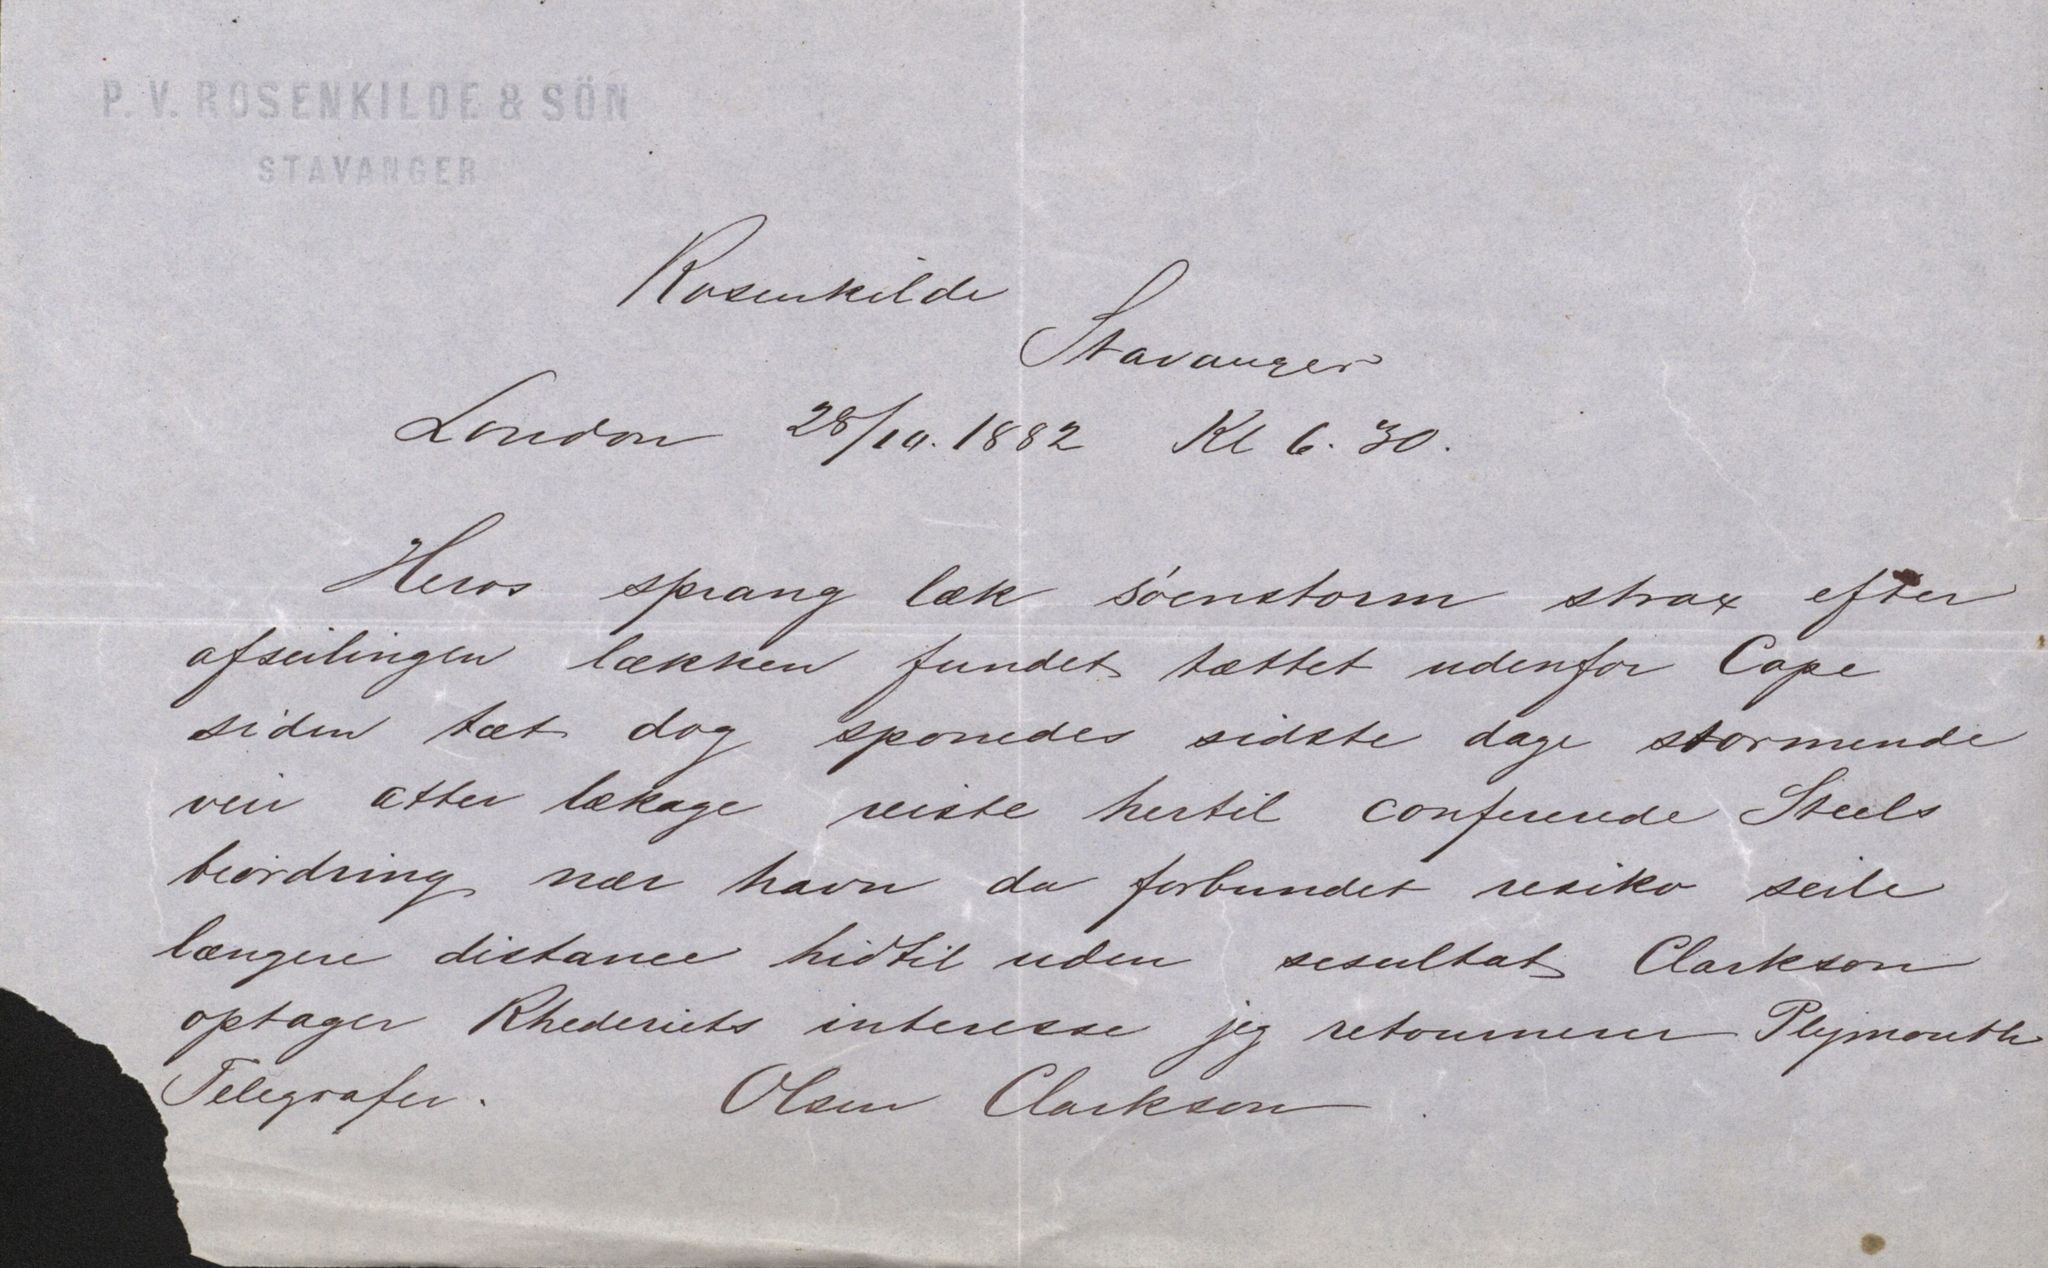 P. V. ROSENKILDE & SÖN
STAVANGER
Rosenkilde
Stavanger
London 28/10. 1882 Kl 6. 30.
Heros sprang læk söenstorm strax efter
afseilingen lækken fundet tættet udenfor Cape
siden tæt dog sporedes sidste dage stormende
veir atter lækage reiste hertil confererede Steels
beordring nær havn da forbundet resiko seile
længere distance hidtil uden resultat Clarkson
optager Rhederiets interesse jeg retournerer Plymouth
Telegrafer. Olsen Clarkson